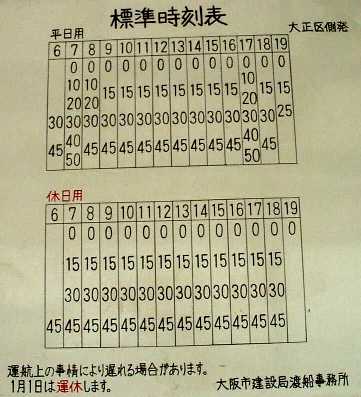 標準時刻表
平日用
大正区側発
6 7 8 9 10 11 12 13 14 15 16 17 18 19
0 0 0 0 0 0 0 0 0 0 0 0 0
10 10 10
20 20 15 15 15 15 15 15 15 15 20 15 15
30 30 30 30 30 30 30 30 30 30 30 30 30 25
40 40
45 45 45 45 45 45 45 45 45 45 45
50 50
休日用
6 7 8 9 10 11 12 13 14 15 16 17 18 19
0 0 0 0 0 0 0 0 0 0 0 0 0
15 15 15 15 15 15 15 15 15 15 15 15
30 30 30 30 30 30 30 30 30 30 30 30
45 45 45 45 45 45 45 45 45 45 45 45 45
運航上の事情により遅れる場合があります。
1月1日は運休します。
大阪市建設局渡船事務所